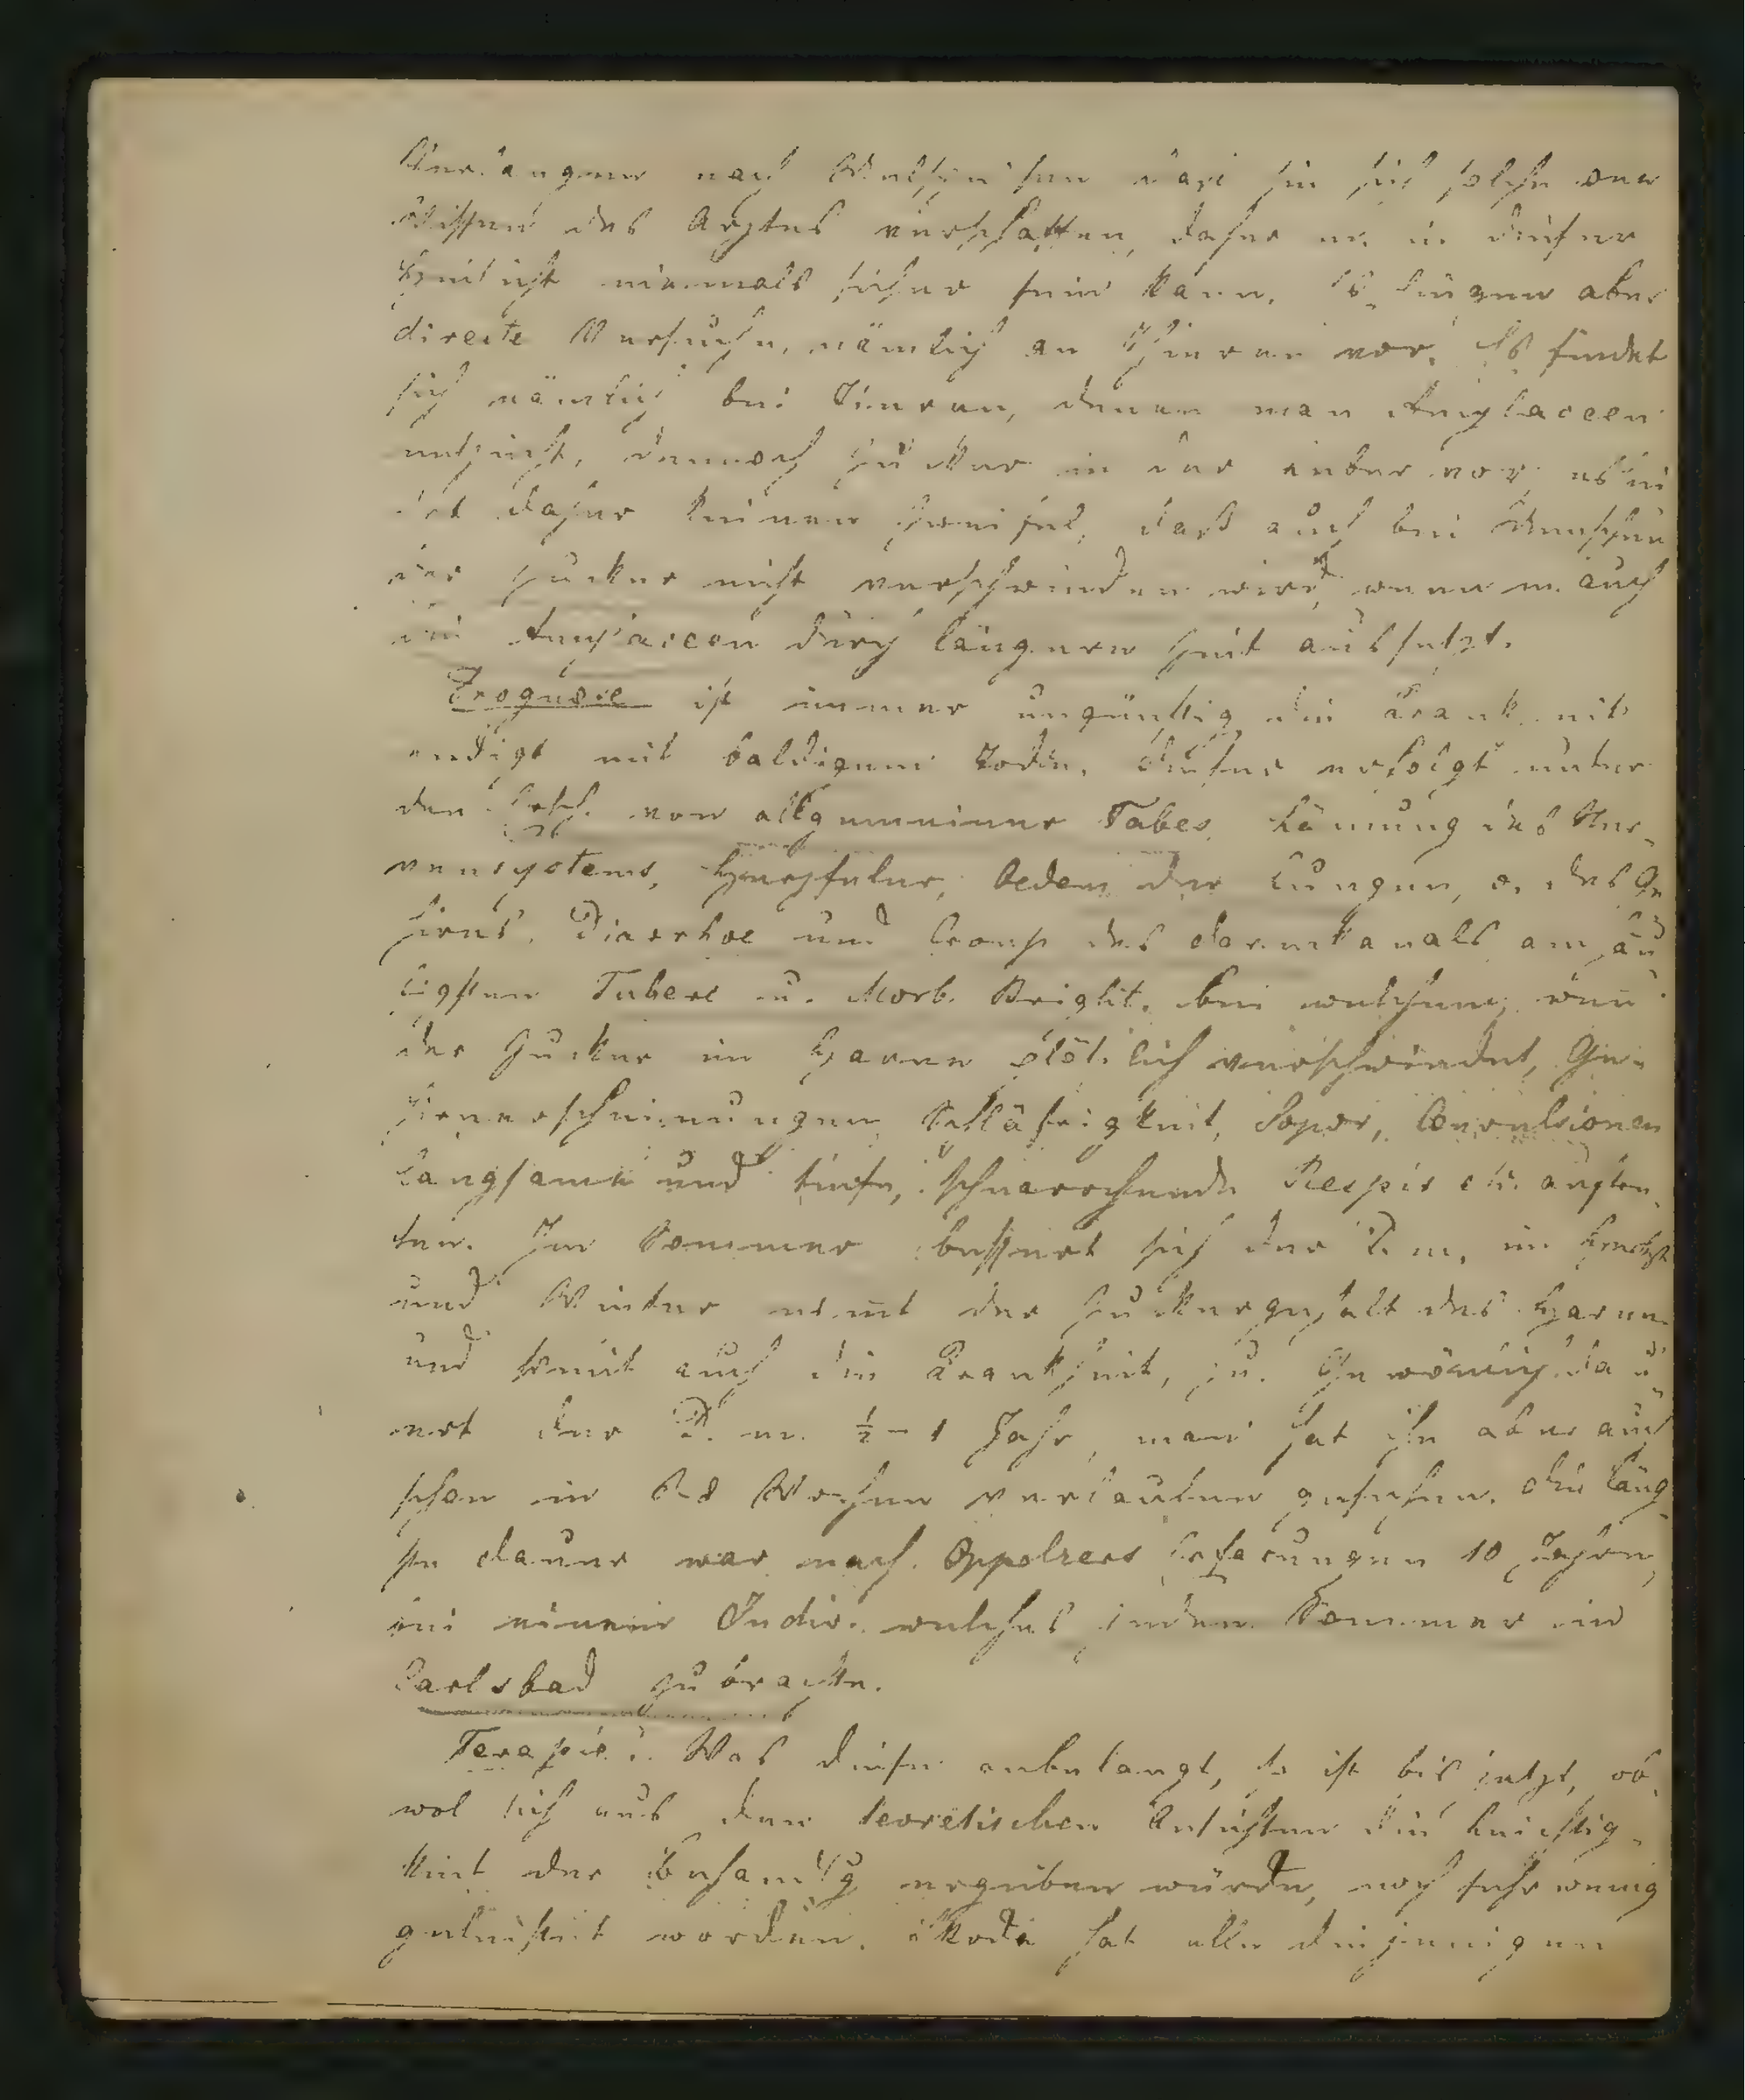 Verlangen nach Mehlspeisen daß sie sich solche one
Wissen des Arztes verschaffen, daher m. in dieser
Hinsicht niemals sicher sein kann. Es liegen aber
directe Versuche, nämlich an Thieren vor. Es findet
sich nämlich bei Tieren, denen man Amylaceen
entzieht, dennoch Zucker in der Leber vor, es lei
det daher keinen Zweifel, daß auch bei Menschen
der Zucker nicht verschwinden wird, wenn m. auch
die Amylaceen durch längere Zeit aussetzt.
Prognose ist immer ungünstig, die Krankheit
endigt mit baldigem Tode. Dieser erfolgt unter
den Ersch. von allgemeiner Tabes, Lämung des Ner-
vensystems, Herzfeler, Oedem der Lungen, o. des Ge
hirns, Diarrhoe und Croup des Darmkanals am häu
figsten Tuberc u. Morb. Bright. bei welchem, wenn
der Zucker im Harne plötzlich verschwindet, Ge-
hirnerscheinungen, Schläfrigkeit, Sopor, Convulsionen
langsame und tiefe, schnarchende Respir etc. auftre-
ten. Im Sommer bessert sich der D. m., im Herbst
und Winter nimt der Zuckergehalt des Harnes
und somit auch die Krankheit, zu. Gewönlich dau-
ert der D. m. ½-1 Jahr, man hat ihn aber auch
schon in 6-8 Wochen verlaufen gesehen. Die läng-
ste Dauer war nach Oppolzers Erfarungen 10 Jahre,
bei einem Indiv. welches jeden Sommer in
Carlsbad zubrachte.
Terapie: Was diese anbelangt, so ist bis jetzt, ob-
wol sich aus den teoretischen Ansichten die Leichtig-
keit der Behandlg ergeben würde, noch sehr wenig
geleistet worden. Skoda hat alle diejenigen